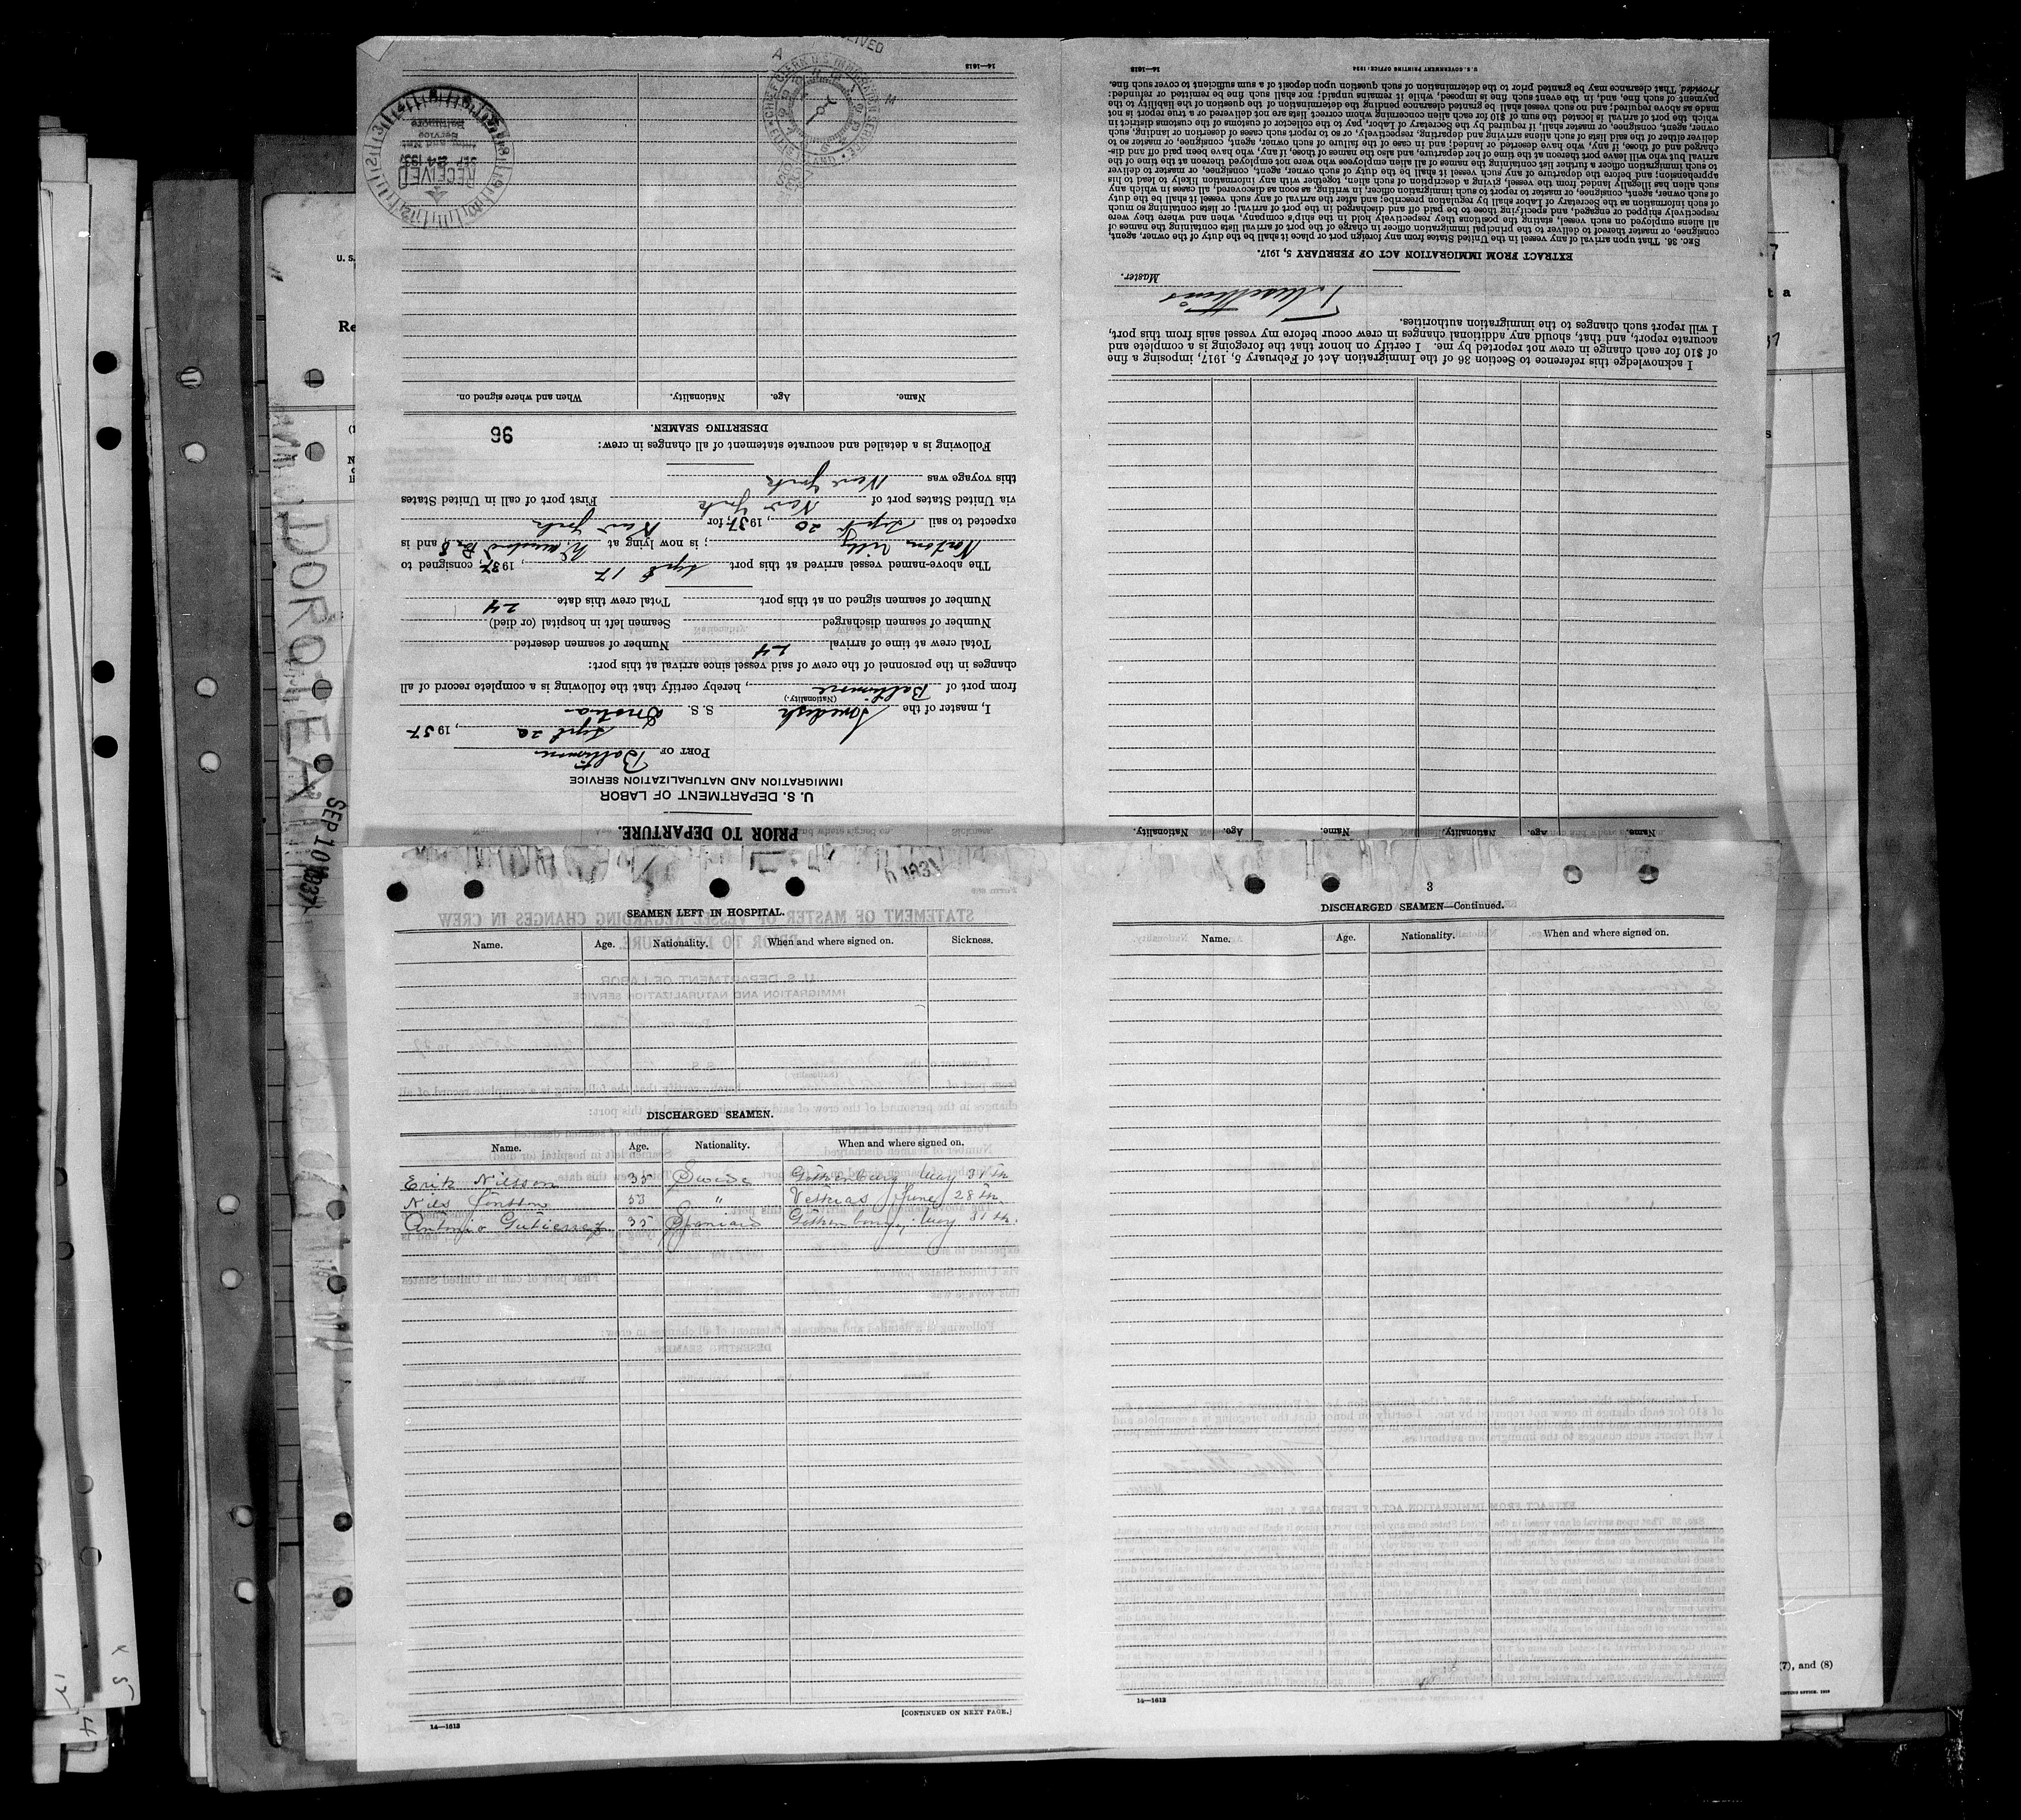 PRIOR TO DEPARTURE.
U. S. DEPARTMENT OF LABOR
IMMIGRATION AND NATURALIZATION SERVICE
PORT OF Baltimore
Sept 20, 1937
I, master of the Swedish S. S.
(Nationality.)
from port of Baltimore, hereby certify that the following is a complete record of all
changes in the personnel of the crew of said vessel since arrival at this port:
Total crew at time of arrival 24 Number of seamen deserted
Number of seamen discharged Seamen left in hospital (or died)
Number of seamen signed on at this port. Total crew this date 24
The above-named vessel arrived at this port Sept 17, 1937, consigned to
Norton Lilly; is now lying at, and is
expected to sail Sept 20, 1937, for New York
via United States port of New York First port of call in United States
this voyage was New York
Following is a detailed and accurate statement of all changes in crew:
96
DESERTING SEAMEN.
Name. Age. Nationality. When and where signed on.
14—1613
RECEIVED
SEP 24 1937
Baltimore
Name. Age. Nationality. Name. Age. Nationality.
I acknowledge this reference to Section 36 of the Immigration Act of February 5, 1917, imposing a fine
of $10 for each change in crew not reported by me. I certify on honor that the foregoing is a complete and
accurate report, and that, should any additional changes in crew occur before my vessel sails from this port,
I will report such changes to the immigration authorities.
Master.
EXTRACT FROM IMMIGRATION ACT OF FEBRUARY 5, 1917.
SEC. 36. That upon arrival of any vessel in the United States from any foreign port or place it shall be the duty of the owner, agent,
consignee, or master thereof to deliver to the principal immigration officer in charge of the port of arrival lists containing the names of
all aliens employed on such vessel, stating the positions they respectively hold in the ship's company, when and where they were
respectively shipped or engaged, and specifying those to be paid off and discharged in the port of arrival; or lists containing so much
of such information as the Secretary of Labor shall by regulation prescribe; and after the arrival of any such vessel it shall be the duty
of such owner, agent, consignee, or master to report to such immigration officer, in writing, as soon as discovered, all cases in which any
such alien has illegally landed from the vessel, giving a description of such alien, together with any information likely to lead to his
apprehension; and before the departure of any such vessel it shall be the duty of such owner, agent, consignee, or master to deliver
to such immigration officer a further list containing the names of all alien employees who were not employed thereon at the time of the
arrival but who will leave port thereon at the time of her departure, and also the names of those, if any, who have been paid off and dis-
charged and of those, if any, who have deserted or landed; and in case of the failure of such owner, agent, consignee, or master so to
deliver either of the said lists of such aliens arriving and departing, respectively, or so to report such cases of desertion or landing, such
owner, agent, consignee, or master shall, if required by the Secretary of Labor, pay to the collector of customs of the customs district in
which the port of arrival is located the sum of $10 for each alien concerning whom correct lists are not delivered or a true report is not
made as above required; and no such vessel shall be granted clearance pending the determination of the question of the liability to the
payment of such fine, and, in the event such fine is imposed, while it remains unpaid; nor shall such fine be remitted or refunded:
Provided, That clearance may be granted prior to the determination of such question upon deposit of a sum sufficient to cover such fine.
14—1613
U. S. GOVERNMENT PRINTING OFFICE: 1934
DOROTEA
SEP 10 1937
SEAMEN LEFT IN HOSPITAL.
Name. Age. Nationality. When and where signed on. Sickness.
DISCHARGED SEAMEN.
Name. Age. Nationality. When and where signed on.
Erik Nilsson 35 Swede Gothenburg May 31 th.
Nils Jönsson 53 " June 28 th.
Antonio Gutierrez 35 Spaniard Gothenburg May 31 th.
[CONTINUED ON NEXT PAGE.]
14—1613
3
DISCHARGED SEAMEN—Continued.
Name. Age. Nationality. When and where signed on.
14—1613
(7), and (8)